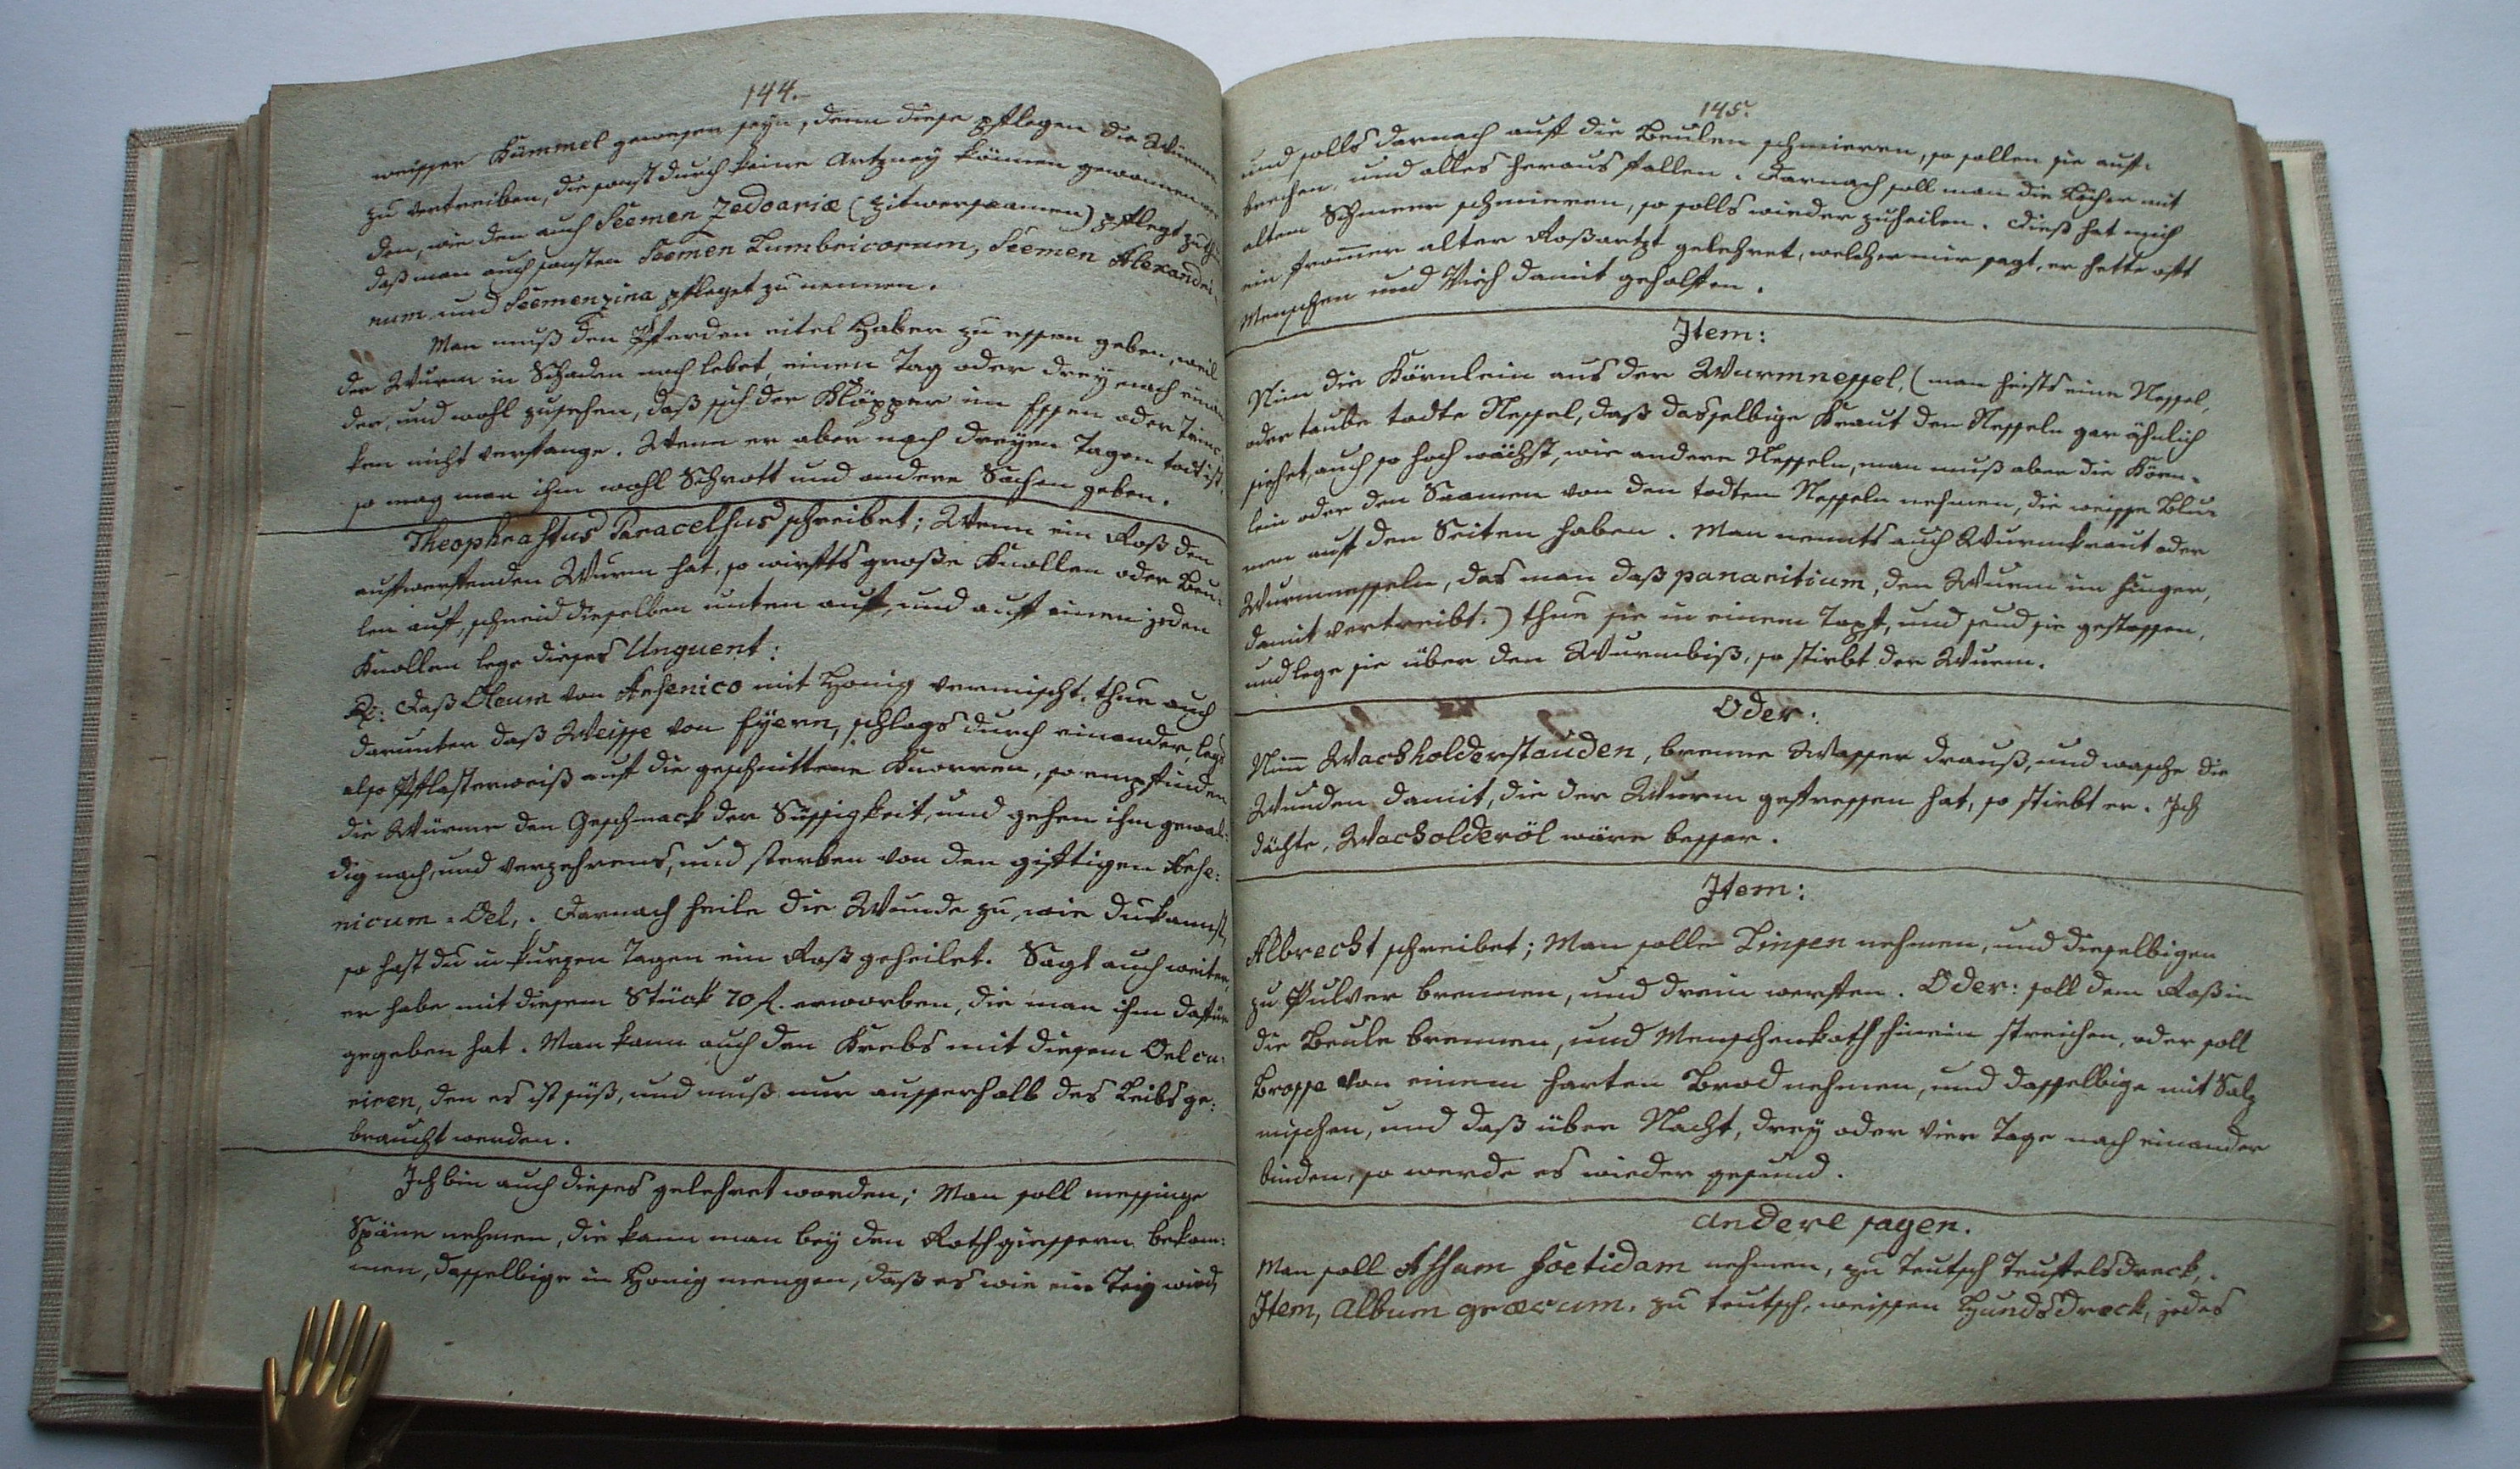 144.
weisser Kümmel gewesen seyn, denn diese pflegen die Würme
zu vertreiben, die sonst durch keine Artzney können gewonnen wer
den, wie den auch Seemen Zedoariæ (Zitwersaamen) pflegt zu thu
daß man auch sonsten Seemen Lumbricorum, Seemen Alexandri-
num und Seemenzina pfleget zu nennen.
Man muß den Pferden eitel Haber zu essen geben, weil
der Wurm in Schaden noch lebet, einen Tag oder drey nach einan
der, und wohl zusehen, daß sich der Klöpper im Essen oder Trinc-
ken nicht verfange. Wenn er aber nach dreyen Tagen todt ist,
so mag man ihm wohl Schrott und andere Sachen geben.
Theophrastus Paracelsus schreibet; Wenn ein Roß den
auffwerffenden Wurm hat, so wirffts große Knollen oder Beu-
len auff, schneid dieselben unten auff, und auff einen jeden
Knollen lege dieses Unguent:
Rx: Daß Oleum von Arsenico mit Honig vermischt, thue auch
darunter daß Weisse von Eyern, schlags durch einander, legs
also Pflasterweiß auff die geschnittene Knorren, so empfinden
die Würme den Geschmack der Süssigkeit, und gehen ihm gewal-
dig nach, und verzehrens, und sterben von den gifftigen Arse:
nicum-Oel,. Darnach heile die Wunde zu, wie du kannst,
so hast du in kurzen Tagen ein Roß geheilet. Sagt auch weiter,
er habe mit diesem Stück 70 fl. erworben, die man ihm dafür
gegeben hat. Man kann auch den Krebs mit diesem Oel cu-
riren, den es ist süß, und muß nur ausserhalb des Leibs ge:
braucht werden.
Ich bin auch dieses gelehret worden; Man soll messinge
Späne nehmen, die kann man bey den Rothgiessern bekom:
men, dasselbige in Honig mengen, daß es wie ein Teig wird,
145.
und solls darnach auff die Beulen schmieren, so sollen sie auff-
brechen, und alles heraus fallen. Darnach soll man die Löcher mit
altem Schmeer schmieren, so solls wieder zuheilen. Dieß hat mich
ein from̄er alter Roßartzt gelehret, welcher mir sagt, er hette offt
Menschen und Vieh damit geholffen.
Item:
Nim die Körnlein aus der Wurmnessel, (man heists eine Nessel,
oder taube todte Nessel, daß dasselbige Kraut den Nesseln gar ähnlich
siehet, auch so hoch wächst, wie andere Nesseln, man muß aber die Körn-
lein oder den Saamen von den todten Nesseln nehmen, die weisse Blu-
men auff den Seiten haben. Man nennts auch Wurmkraut oder
Wurmnesseln, das man daß panaritium, den Wurm im Finger,
damit vertreibt.) thue sie in einem Topf, und send sie gestossen,
und lege sie über den Wurmbiß, so stirbt der Wurm.
Oder:
Nim̄ Wachholderstauden, brenne Wasser drauß, und wasche die
Wunden damit, die der Wurm gefressen hat, so stirbt er. Ich
dächte, Wacholderöl wäre besser.
Item:
Albrecht schreibet; Man solle Linsen nehmen, und dieselbigen
zu Pulver brennen, und drein werffen. Oder: soll dem Roß in
die Beule brennen, und Menschenkoth hinein streichen, oder soll
Brosse von einem harten Brod nehmen, und dasselbige mit Salz
mischen, und daß über Nacht, drey oder vier Tage nach einander
binden, so werde es wieder gesund.
andere sagen.
Man soll Assam foetidam nehmen, zu Teutsch Teuffelsdreck,.
Item, Album græcum. zu teutsch, weissen Hundsdreck, jedes